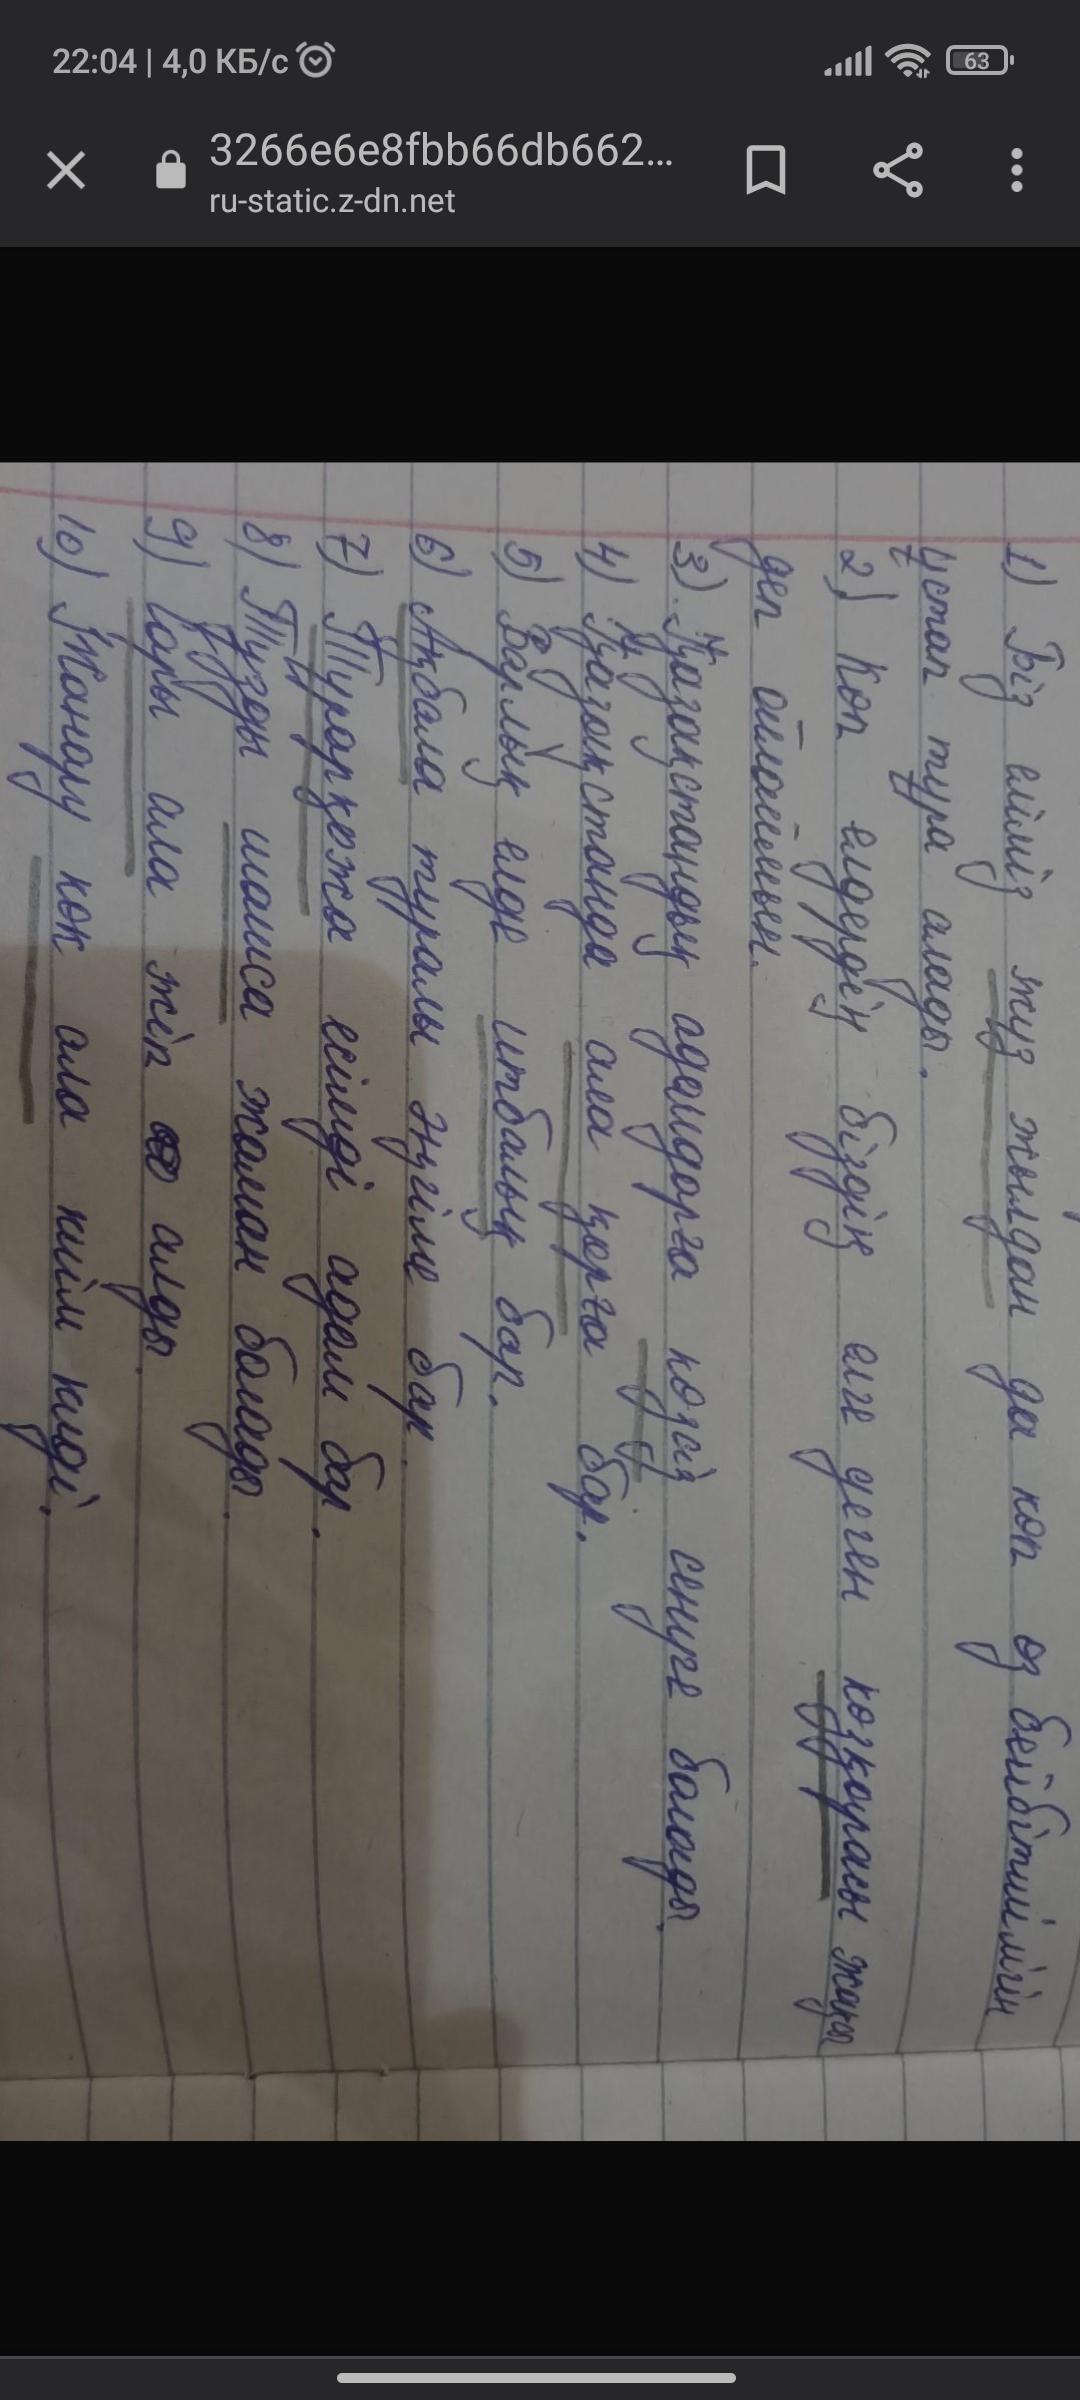 22:04 | 4,0 КБ/с
63
3266e6e8fbb66db662...
ru-static.z-dn.net
1) Біз еліміз жүз жылдан да көп өз бейбітшілігін
ұстап тұра алады.
2) Көп елдердің біздің елге деген көзқарасы жақсы
деп ойлаймын.
3) Қазақстандық адамдарға көзсіз сенуге болады.
4) Қазақстанда ала қарға бар.
5) Барлық елде итбалық бар.
6) Ақбала туралы әңгіме бар.
7) Тұрарқожа есімді адам бар.
8) Тұзды шашса жаман болады.
9) Сары ала жіп алды.
10) Жанару көк ала киім киді.